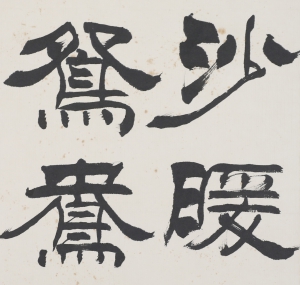 沙暖
鴛鴦